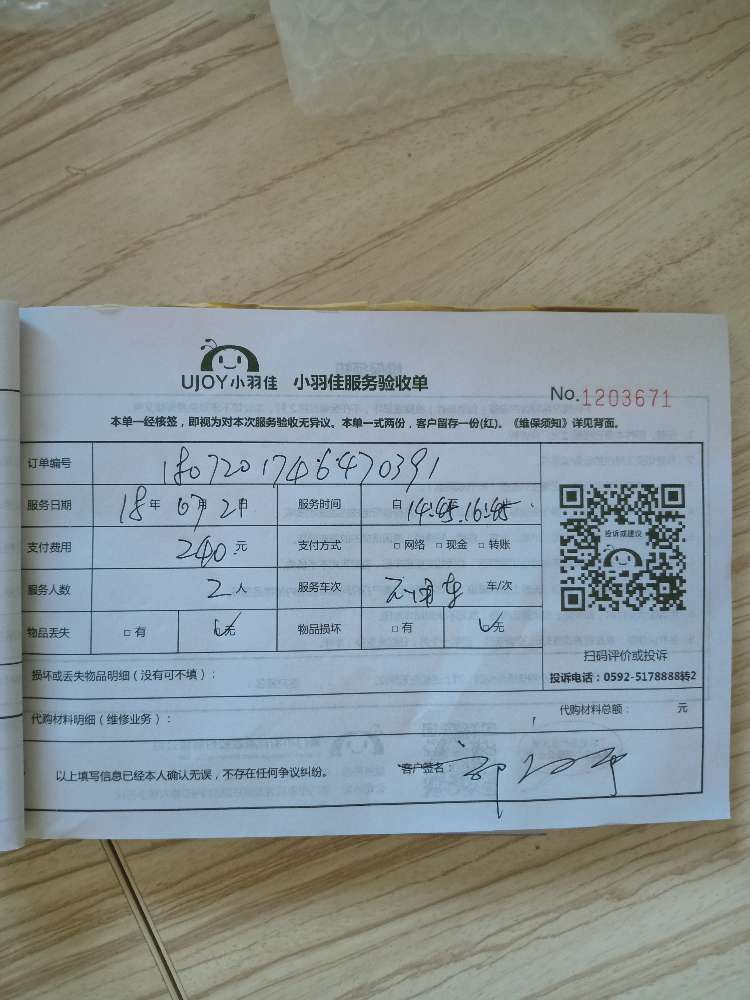 UJOY小羽佳 小羽佳服务验收单
No.1203671
本单一经核签，即视为对本次服务验收无异议。本单一式两份，客户留存一份(红)。《维保须知》详见背面。
订单编号 180720174646470391
服务日期 18年07月21日 服务时间 自14:45至16:45止
支付费用 240元 支付方式 □网络 □现金 □转账
投诉或建议
服务人数 2人 服务车次 车/次
物品丢失 □有 无 物品损坏 □有 无
扫码评价或投诉
损坏或丢失物品明细（没有可不填）：
投诉电话：0592-5178888转2
代购材料明细（维修业务）： 代购材料总额： 元
以上填写信息已经本人确认无误，不存在任何争议纠纷。 客户签名：